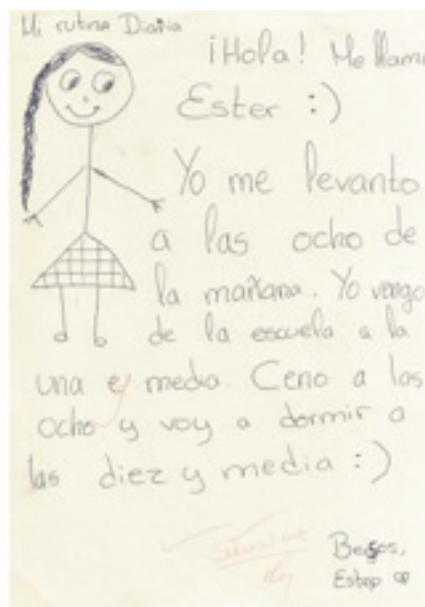 Mi rutina Diaria
¡Hola! Me llamo
Ester :)
Yo me levanto
a las ocho de
la mañana. Yo vengo
de la escuela a la
una e media. Ceno a las
ocho y voy a dormir a
las diez y media :)
Besos,
Ester